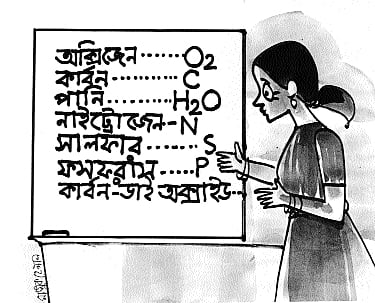 অক্সিজেন ...... O2
কার্বন ...... C
পানি ...... H2O
নাইট্রোজেন -- N
সালফার ...... S
ফসফরাস ..... P
কার্বন-ডাই অক্সাইড --